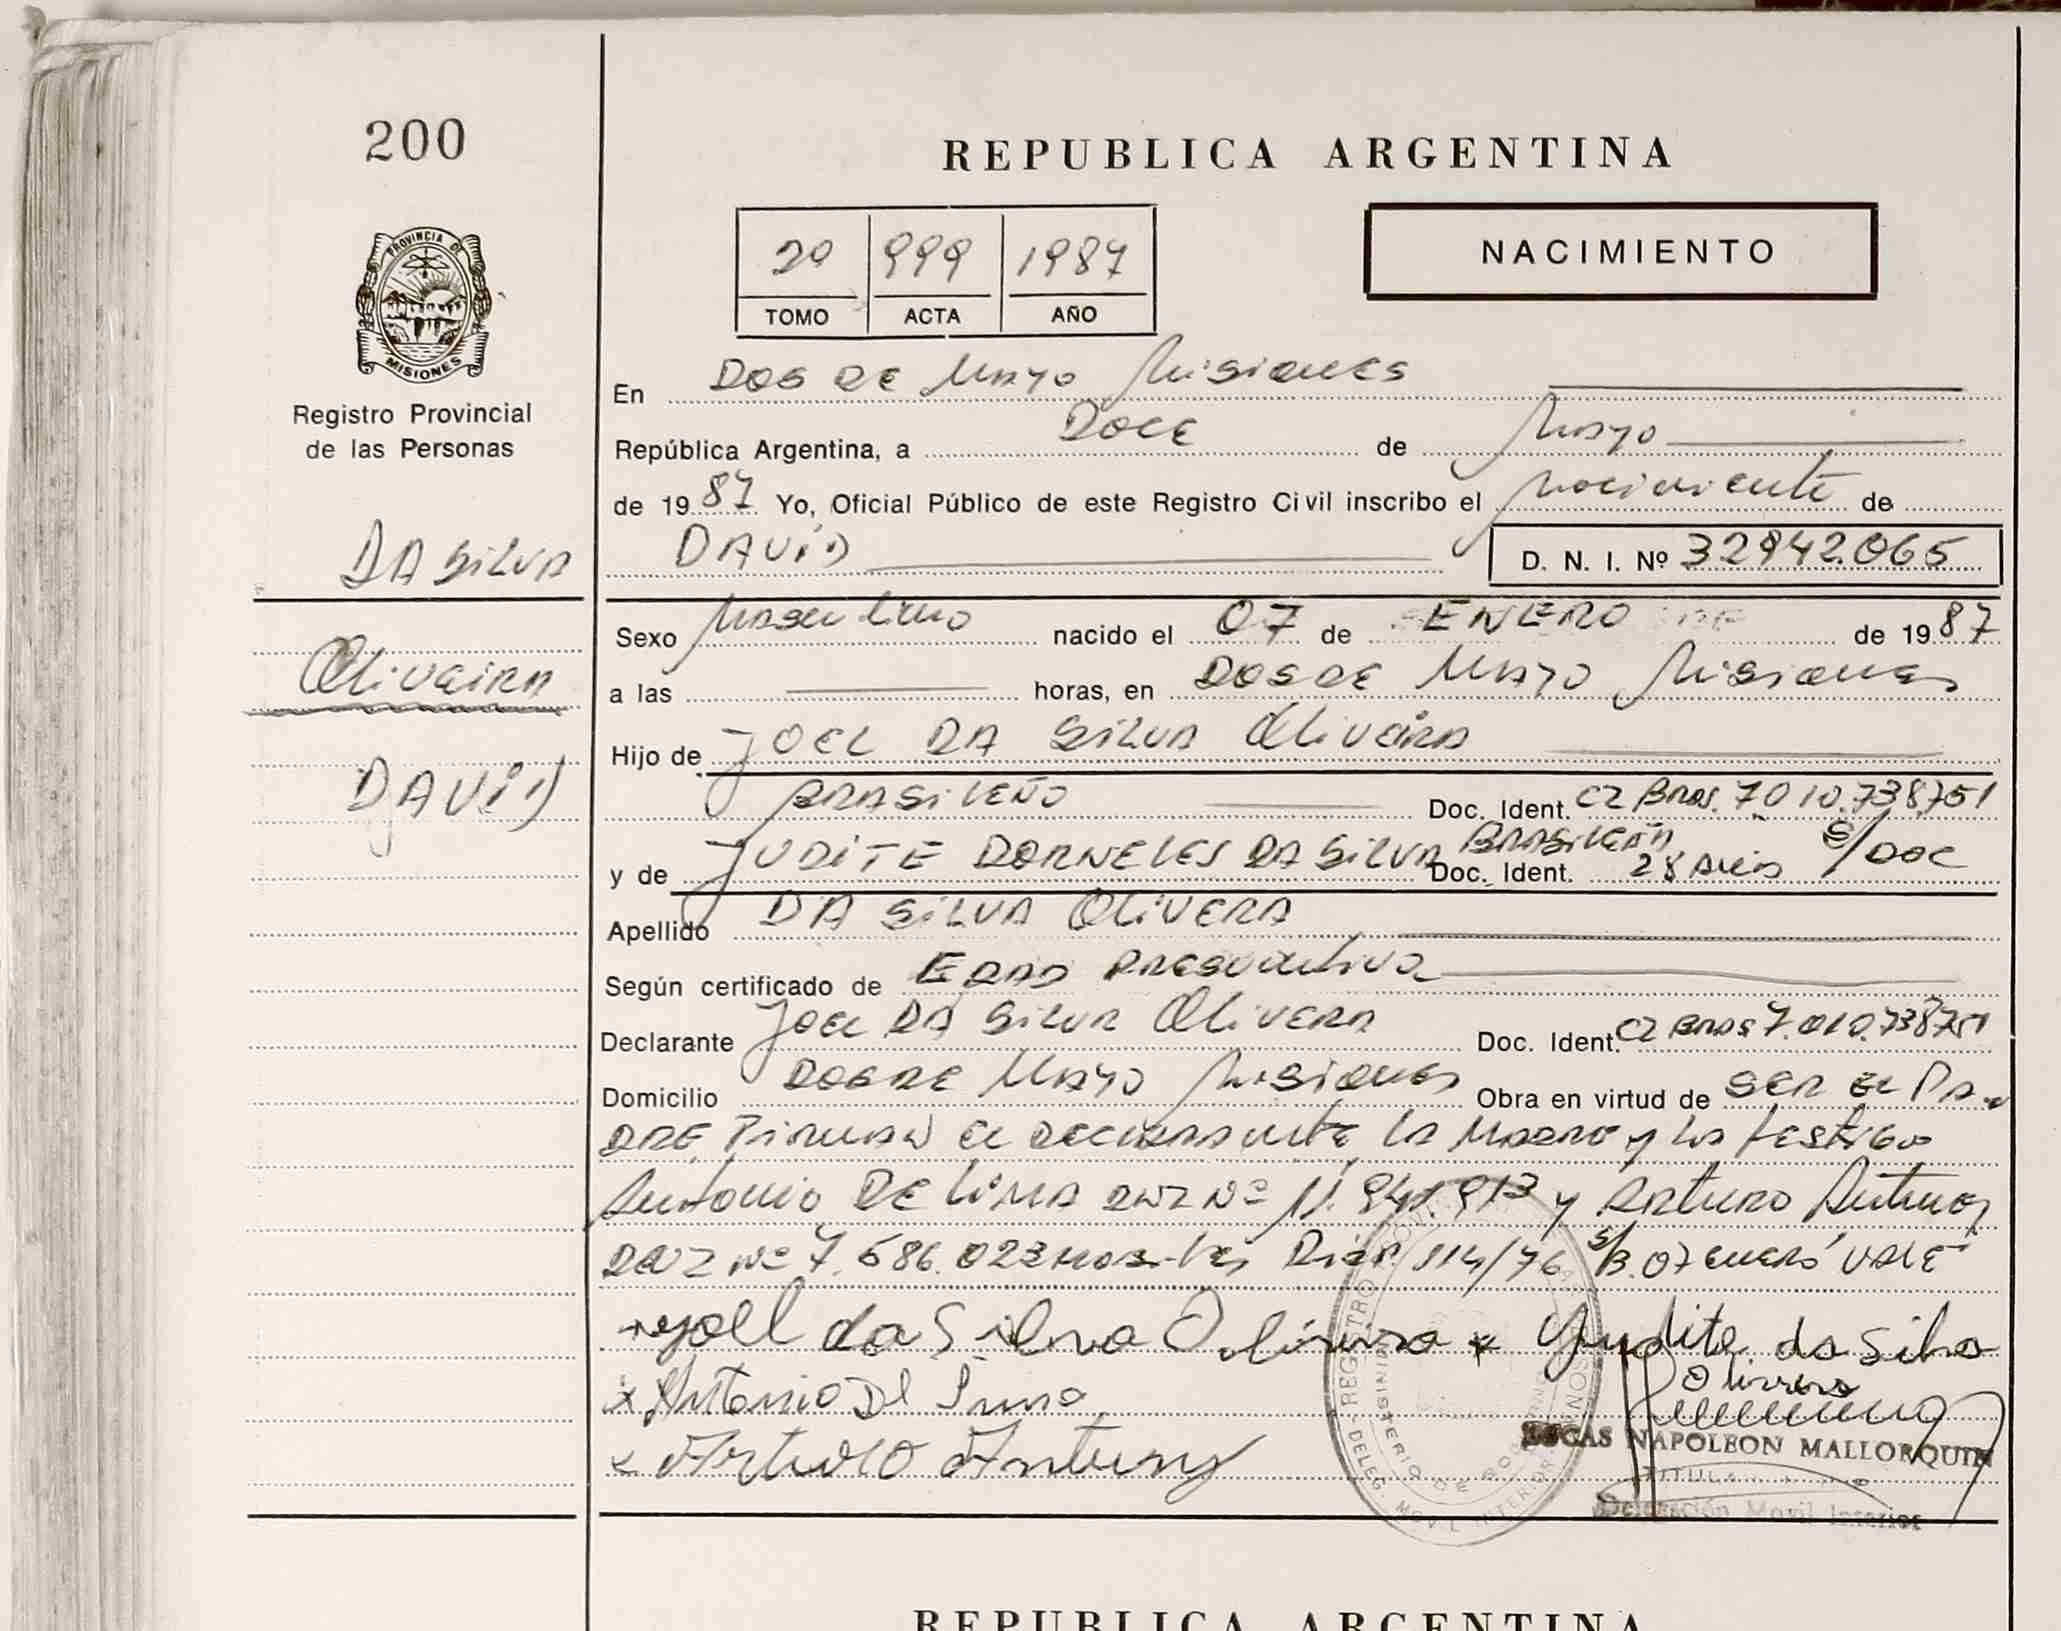 200
REPUBLICA ARGENTINA
PROVINCIA DE
MISIONES
Registro Provincial
de las Personas
2º 999 1987
TOMO ACTA AÑO
NACIMIENTO
En Dos DE Mayo Misiones
República Argentina, a Doce de Mayo
de 1987 Yo, Oficial Público de este Registro Civil inscribo el nacimiento de
DAVID D. N. I. Nº 32942.065
DA SILVA
Oliveira
DAVID
Sexo Masculino nacido el 07 de ENERO de 1987
a las horas, en DOS DE Mayo Misiones
Hijo de JOEL DA SILVA Oliveira
BRASILEÑO Doc. Ident. CI Bras. 7.010.738.751
y de JUDITE DORNELES DA SILVA Brasileña Doc. Ident. 28 Años S/DOC
Apellido DA SILVA OLIVERA
Según certificado de EDAD Presuntiva
Declarante Joel DA SILVA OLIVERA Doc. Ident. CI Bras 7.010.738751
Domicilio DOS DE Mayo Misiones Obra en virtud de SER EL PA-
DRE, Firman el declarante la Madre y los testigos
Antonio DE LIMA DNI Nº 11.941.913 y Arturo Antunes
DNI Nº 7.686.023 114/76 S/B. 07 Enero VALE
Joel da Silva Olivera x Yudite da Silva
Olivera
x Antonio De Lima
x Arturo Antunes
LUCAS NAPOLEON MALLORQUIN
TITULAR
Delegación Movil Interior
REGISTRO
MINISTERIO DE GOBIERNO
DELEG. MOVIL INTERIOR
MISIONES
REPUBLICA ARGENTINA